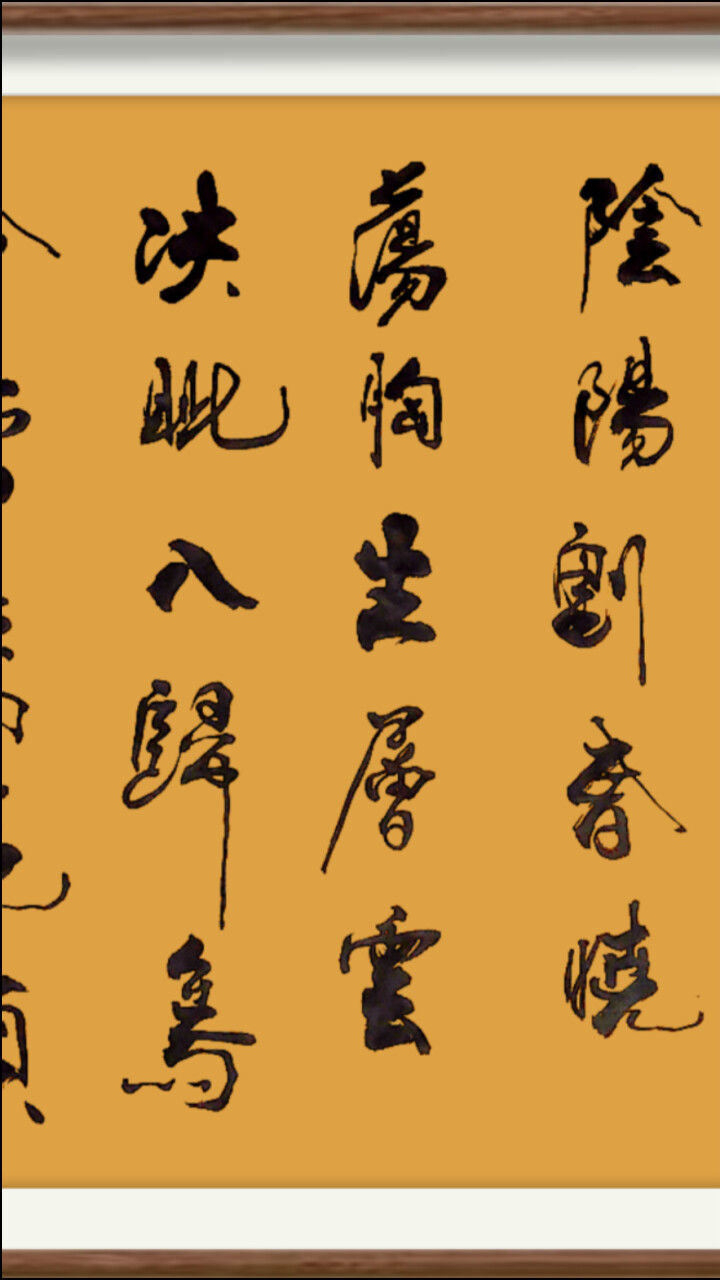 陰陽割昏曉
蕩胸生層雲
决眦入歸鳥